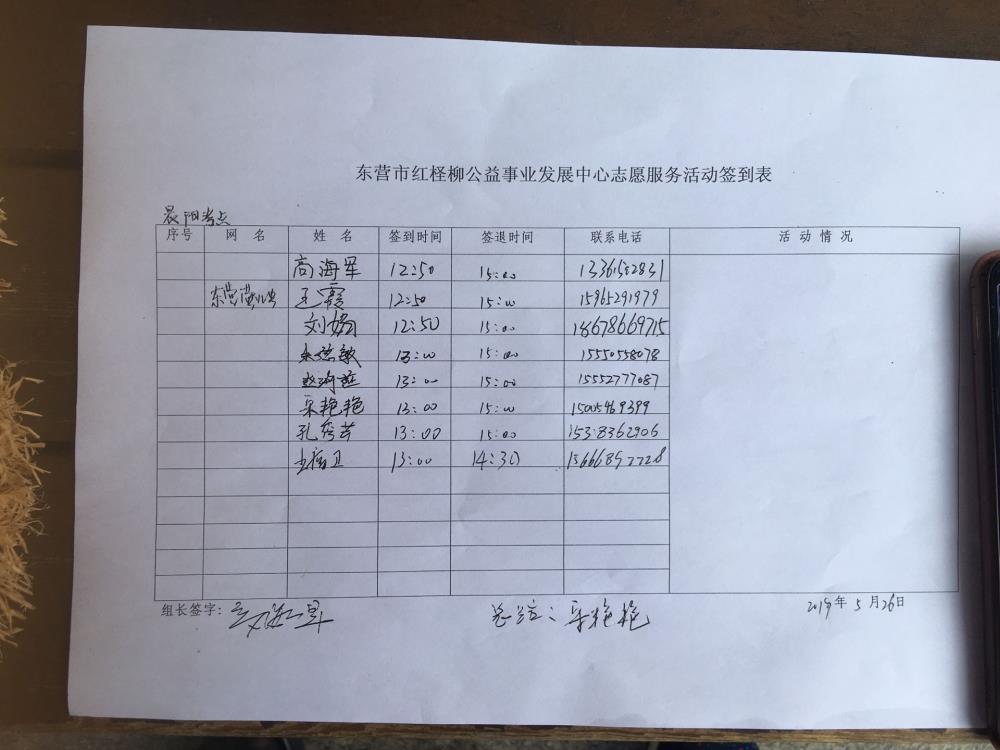 东营市红柽柳公益事业发展中心志愿服务活动签到表
晨阳考点
序号 网 名 姓 名 签到时间 签退时间 联系电话 活 动 情 况
高海军 12:50 15:00 13361502831
王霞 12:50 15:00 15965291979
刘娟 12:50 15:00 18678669715
13:00 15:00 15550558078
13:00 15:00 15552777087
采艳艳 13:00 15:00 15005469399
孔秀芳 13:00 15:00
13:00 14:30 15666897728
组长签字: 高海军 采艳艳 2019年 5 月 26日